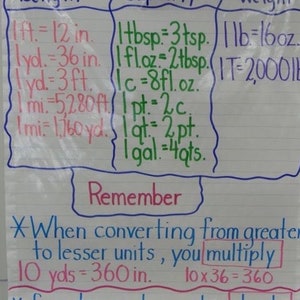 Weight
1 ft. = 12 in.
1 yd. = 36 in.
1 yd. = 3 ft.
1 mi. = 5,280 ft
1 mi = 1,760 yd.
1 tbsp. = 3 tsp.
1 fl. oz = 2 tbsp.
1 c = 8 fl. oz.
1 pt = 2 c.
1 qt. = 2 pt.
1 gal. = 4 qts.
1 lb = 16 oz.
1 T = 2,000 lb
Remember
* When converting from greater
to lesser units, you multiply
10 yds = 360 in. 10 x 36 = 360